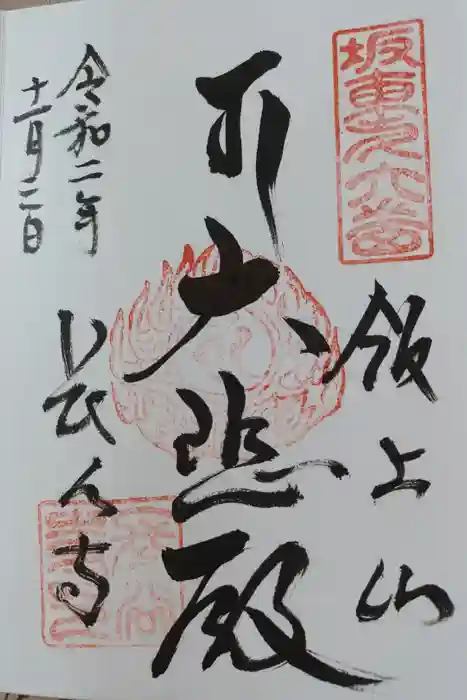 坂東第六番
飯上山
大悲殿
長谷寺
令和二年
十二月二日